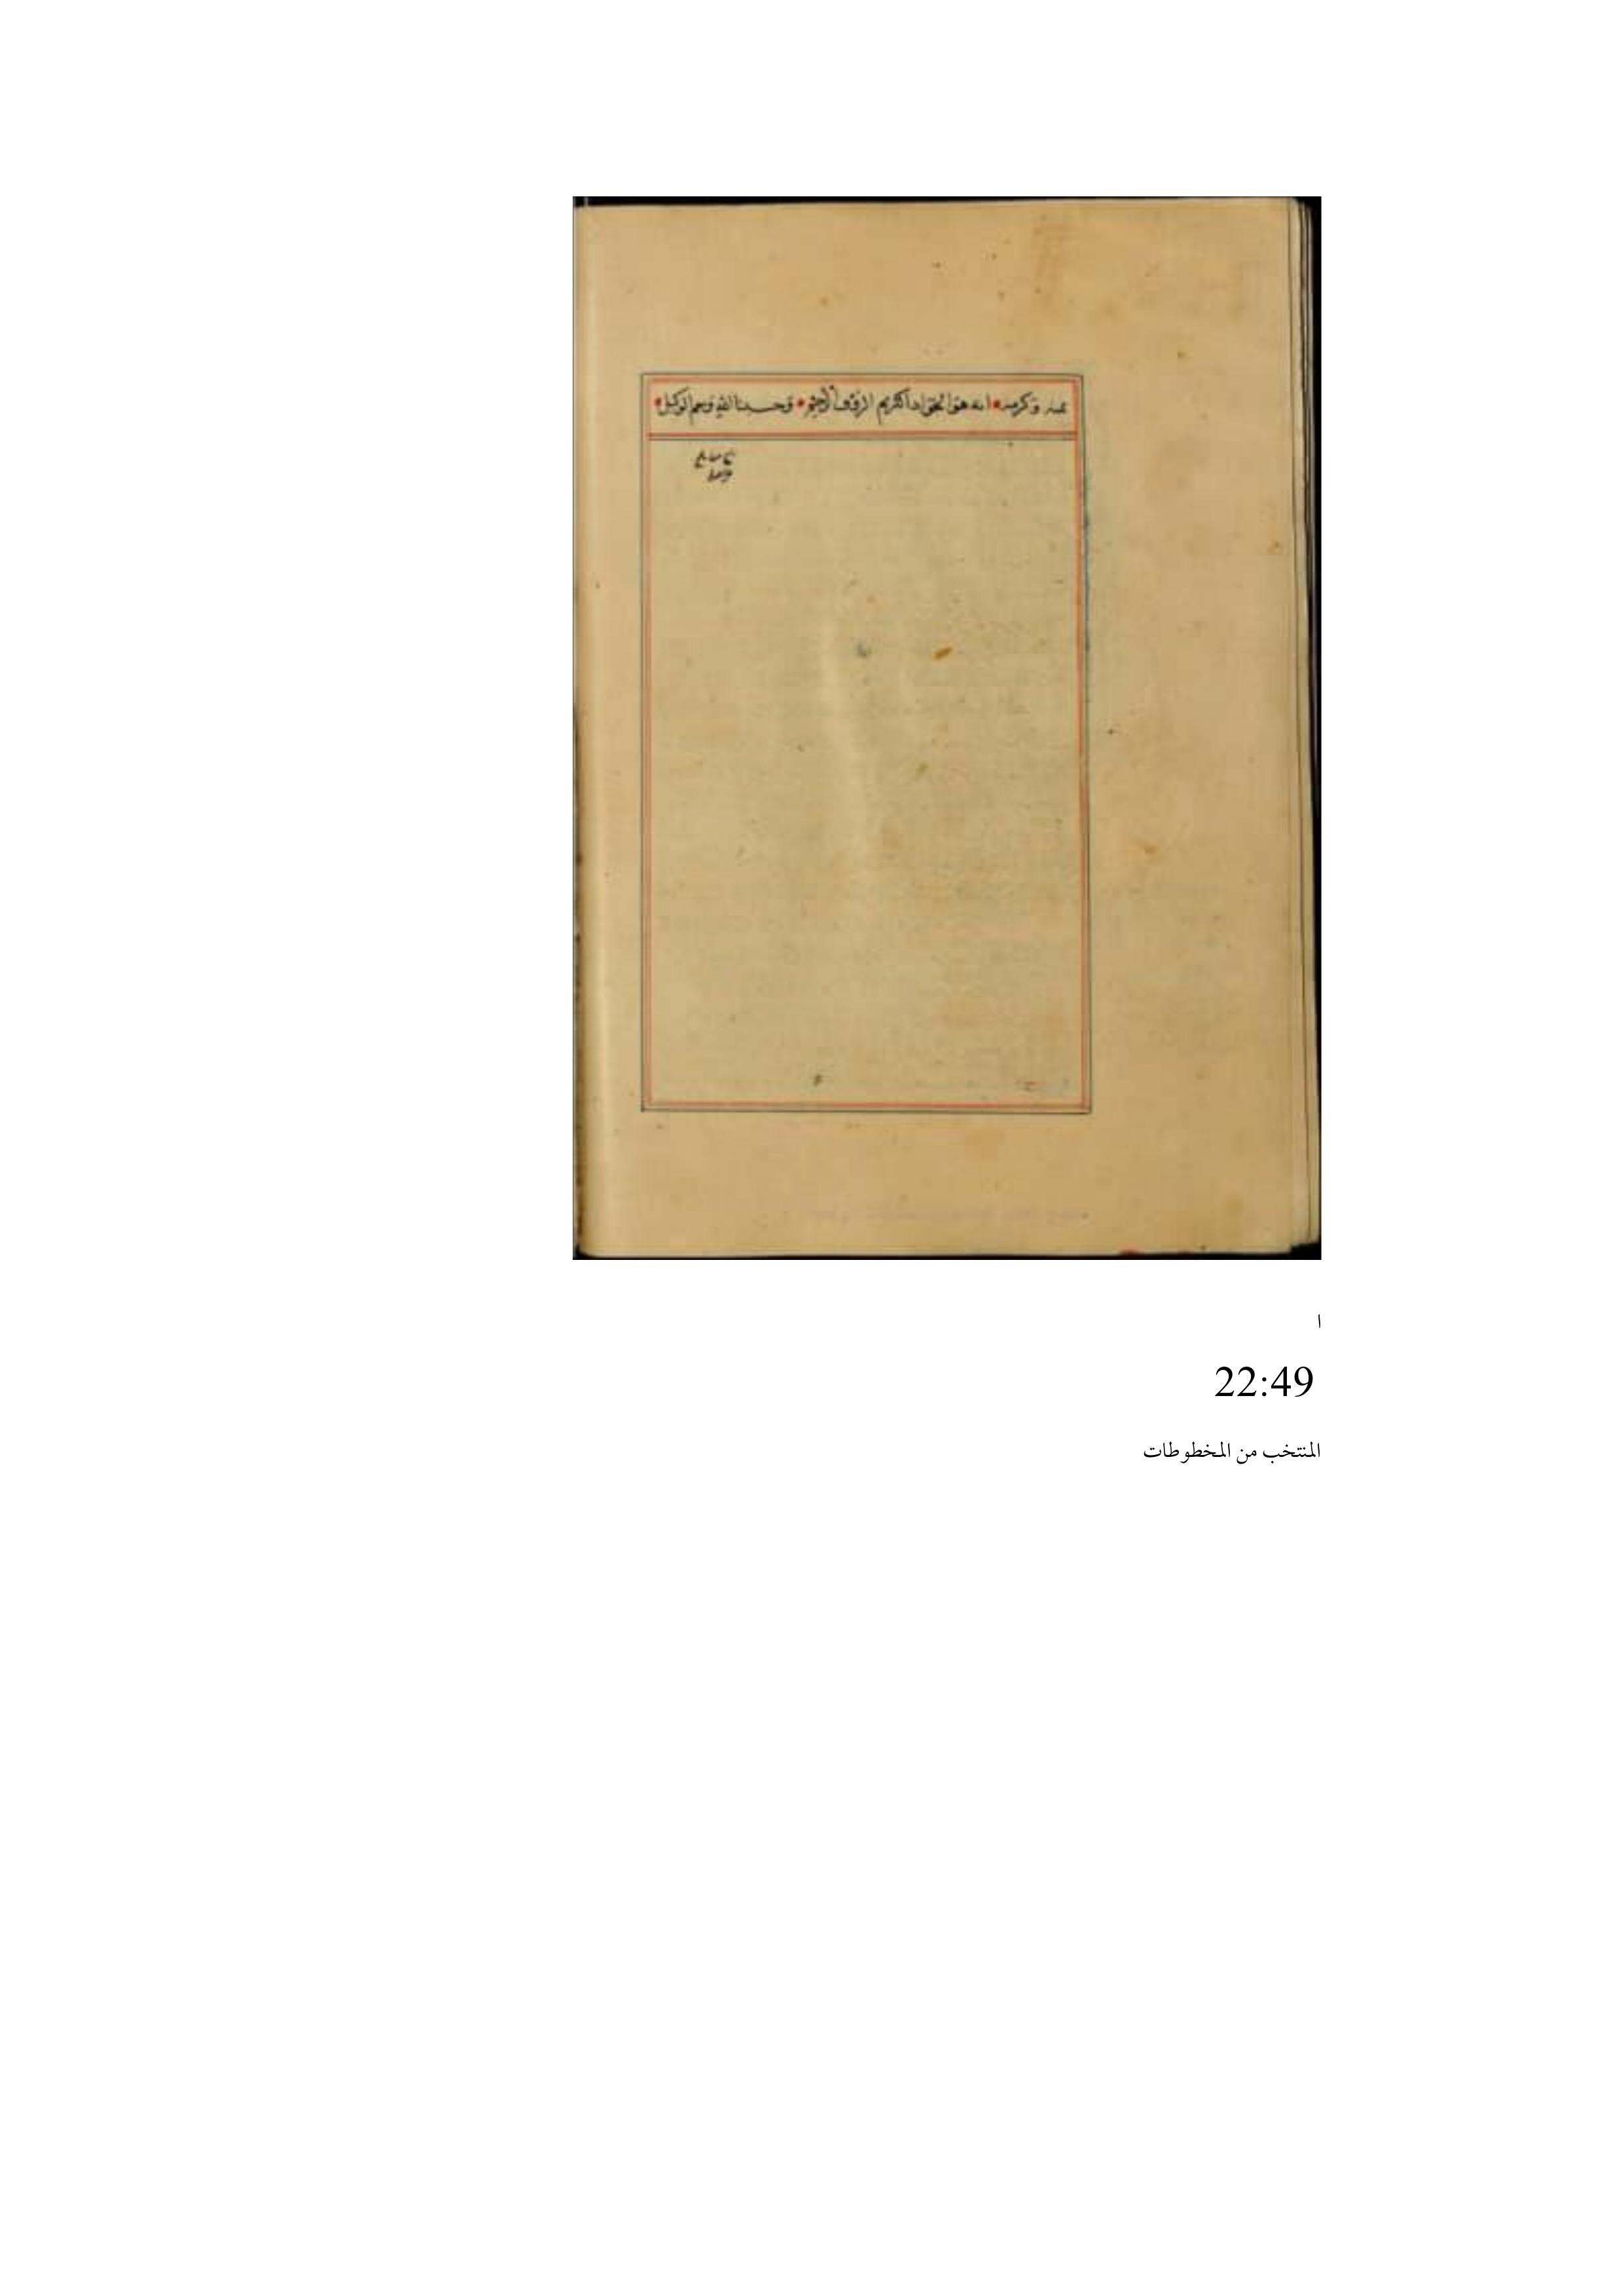 بمنه وكرمه انه هو الجواد الكريم الرؤف الرحيم وحسبنا الله ونعم الوكيل
ا
22:49
المنتخب من المخطوطات